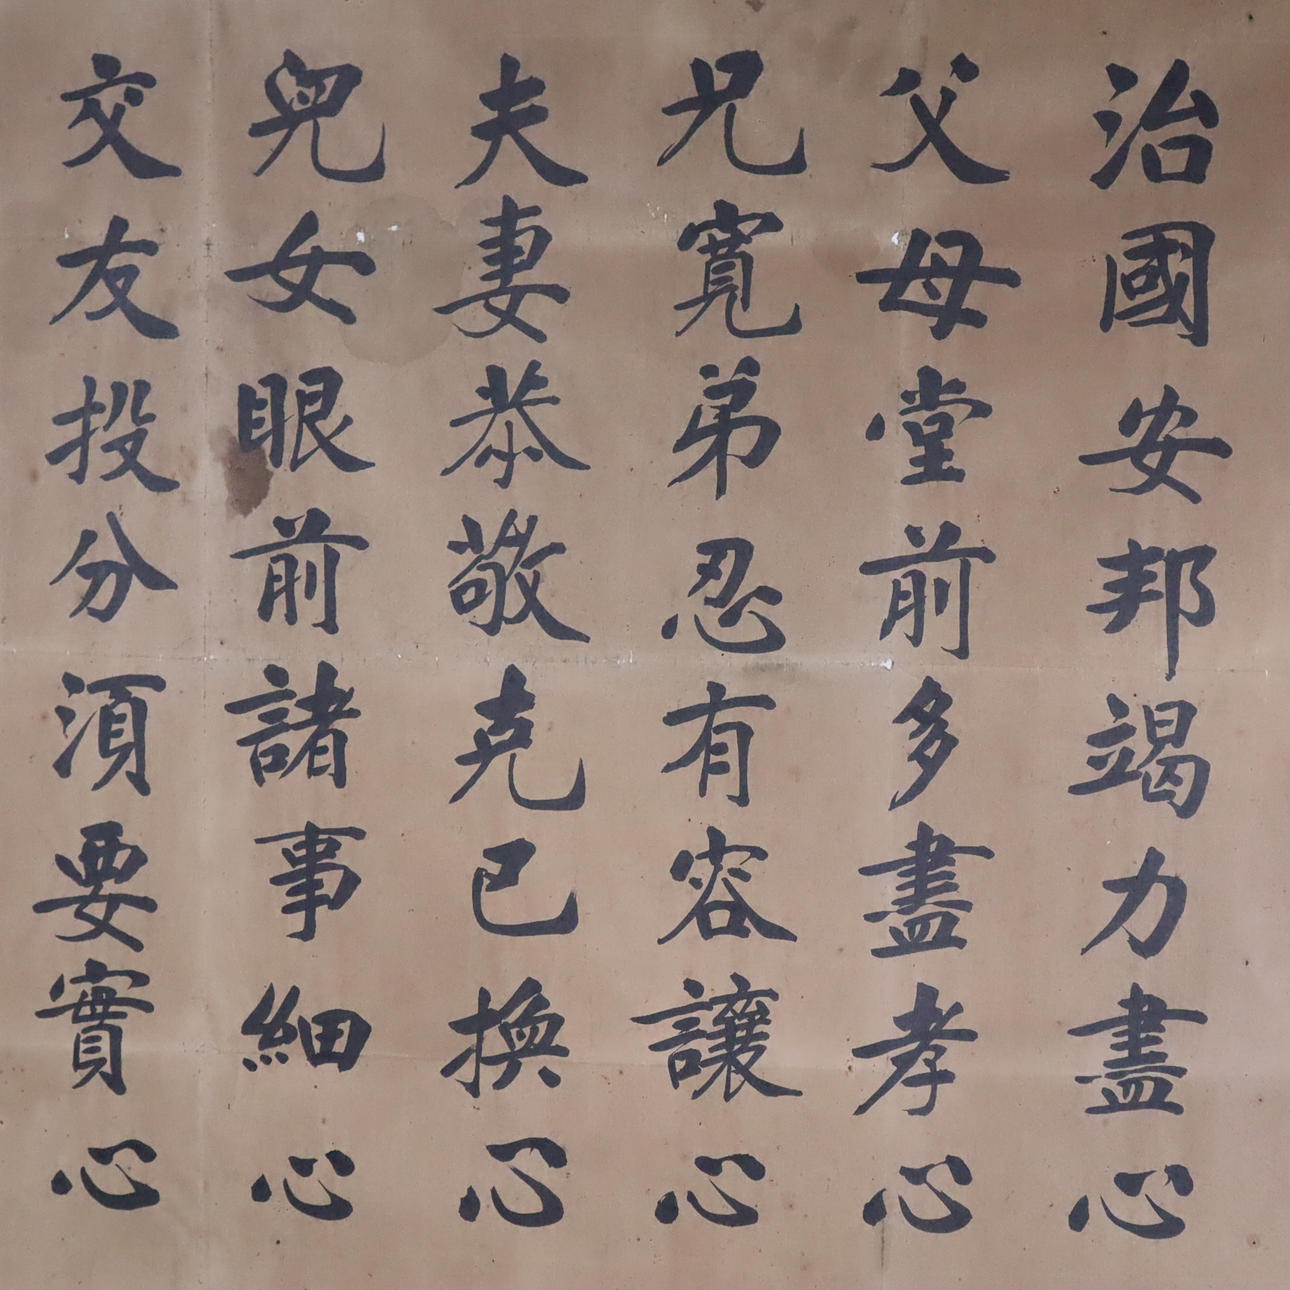 治國安邦竭力盡心
父母堂前多盡孝心
兄寬弟忍有容讓心
夫妻恭敬克己換心
兒女眼前諸事細心
交友投分須要實心